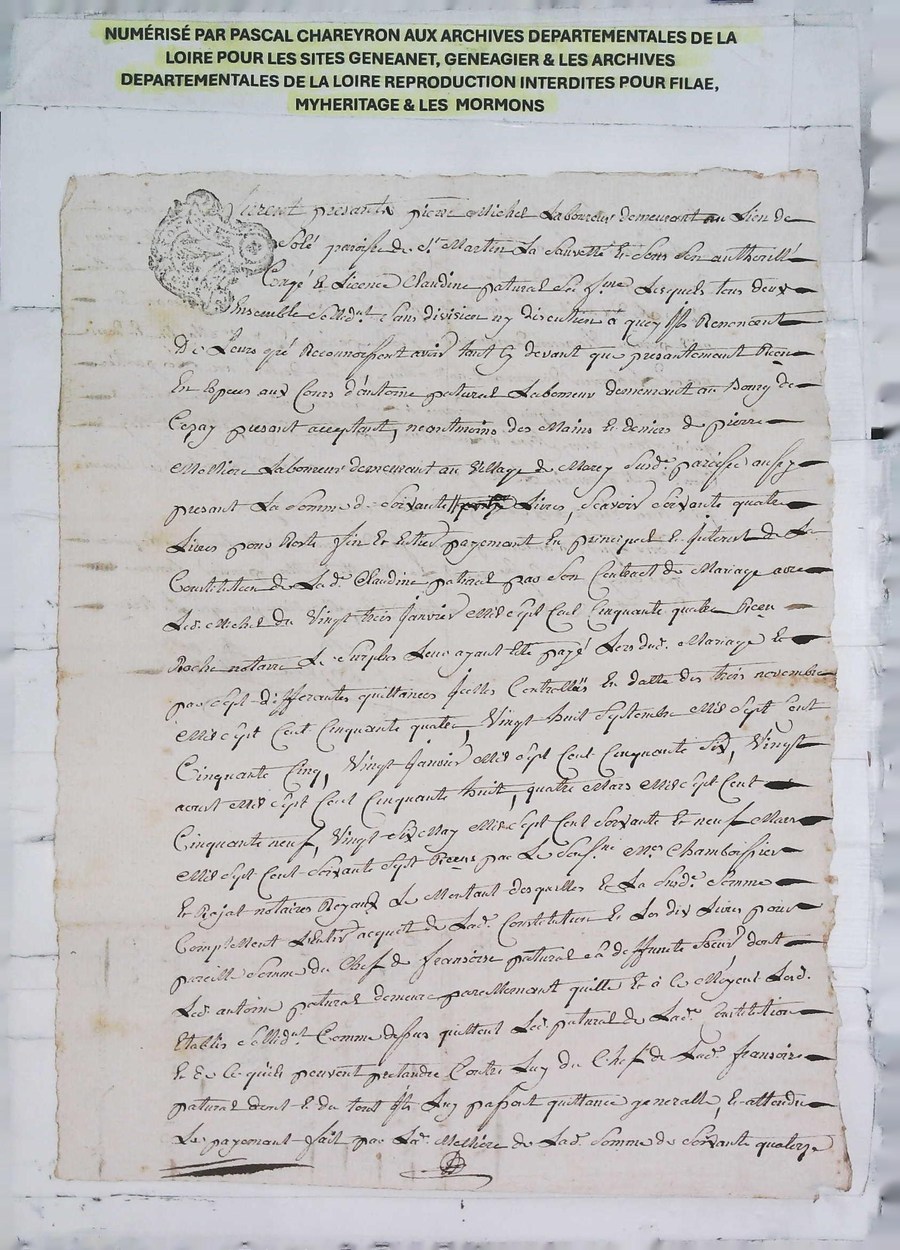 NUMÉRISÉ PAR PASCAL CHAREYRON AUX ARCHIVES DEPARTEMENTALES DE LA
LOIRE POUR LES SITES GENEANET, GENEAGIER & LES ARCHIVES
DEPARTEMENTALES DE LA LOIRE REPRODUCTION INTERDITES POUR FILAE,
MYHERITAGE & LES MORMONS
furent presants pierre Michel Laboureur demeurant au Lieu de
Solé paroisse de st Martin La Sauvetté Et Sous Son authorité
Congé Et Licence Claudine patural Sa fme Lesquels tous deux
Ensemble Sollidt Sans division ny discution a quoy ils Renoncent
De Leurs gré Reconnoissent avoir tant Cy devant que presantement Receu
En Especes aux Cours d'antoine patural Laboureur demeurant au Bourg de
Cezay presant acceptant, neantmoins des Mains Et deniers de pierre
Melhiere Laboureur demeurant au Village de Marcy Susde paroisse aussy
presant La Somme de Soixante Livres, Scavoir Soixante quatre
Livres pour Reste fin Et Entier payement En principal Et Interest de La
Constitution de Lade Claudine patural par Son Contract de Mariage avec
Led. Michel du Vingt trois Janvier Mil Sept Cent Cinquante quatre Receu
Roche notaire Le Surplus Leur ayant Eté payé Lors dud. Mariage Et
par Sept differantes quittances Icelles Controllées En datte des trois novembre
Mil Sept Cent Cinquante quatre, Vingt huit Septembre Mil Sept Cent
Cinquante Cinq, Vingt Janvier Mil Sept Cent Cinquante Six, Vingt
aoust Mil Sept Cent Cinquante huit, quatre Mars Mil Sept Cent
Cinquante neuf, Vingt Six May Mil Sept Cent Soixante Et neuf Mars
Mil Sept Cent Soixante Sept Receus par Le Soussne Mes Chamboissier
Et Rejat notaires Royaux Le Montant desquelles Et La Susde Somme
Complettent L'entier acquet de Lade Constitution Et Les dix Livres pour
pareille Somme du Chef de fransoise patural Sa deffunte Soeur dont
Led. antoine patural demeure pareillemant quitte Et a Ce Moyent Lesd.
Etablis Sollidt Comme dessus quittent Led. patural de Lade Constitution
Et de Ce qu'ils peuvent pretandre Contre Luy du Chef de Lade fransoise
patural dont Et du tout ils Luy passent quittance generalle, Et attendu
Le payemant fait par Led. Melhiere de Lade Somme de Soixante quatorze